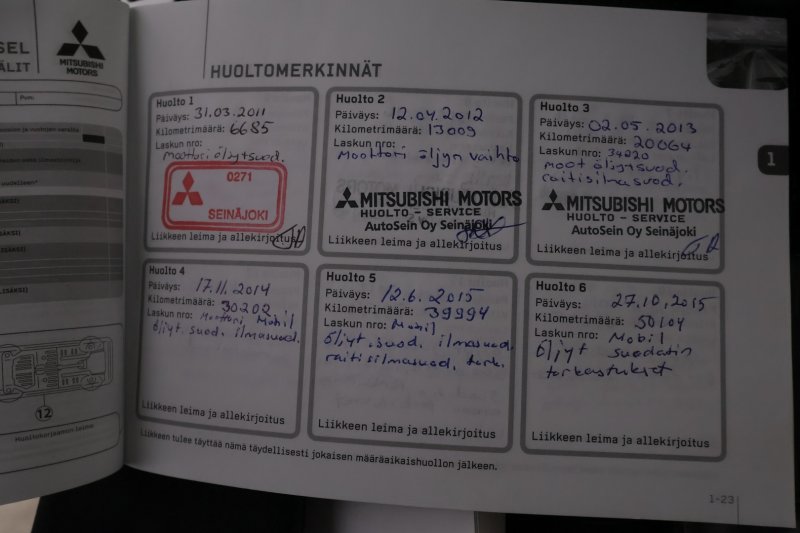 SEL
ÄLIT
MITSUBISHI
MOTORS
Pvm:
12
Huoltokorjaamon leima
HUOLTOMERKINNÄT
Huolto 1
Päiväys: 31.03.2011
Kilometrimäärä: 6685
Laskun nro:
moottori öljytsuod.
0271
SEINÄJOKI
Liikkeen leima ja allekirjoitus
Huolto 2
Päiväys: 12.04.2012
Kilometrimäärä: 13009
Laskun nro:
Moottori öljyn vaihto
MITSUBISHI MOTORS
HUOLTO - SERVICE
AutoSein Oy Seinäjoki
Liikkeen leima ja allekirjoitus
Huolto 3
Päiväys: 02.05.2013
Kilometrimäärä: 20064
Laskun nro: 34220
moot öljytsuod.
raitisilmasuod.
MITSUBISHI MOTORS
HUOLTO - SERVICE
AutoSein Oy Seinäjoki
Liikkeen leima ja allekirjoitus
Huolto 4
Päiväys: 17.11.2014
Kilometrimäärä: 30202
Laskun nro: Moottori Mobil
öljyt. suod. ilmasuod.
Liikkeen leima ja allekirjoitus
Huolto 5
Päiväys: 12.6.2015
Kilometrimäärä: 39994
Laskun nro: Mobil
öljyt. suod. ilmasuod.
raitisilmasuod. tark.
Liikkeen leima ja allekirjoitus
Huolto 6
Päiväys: 27.10.2015
Kilometrimäärä: 50104
Laskun nro: Mobil
öljyt suodatin
tarkastukset
Liikkeen leima ja allekirjoitus
Liikkeen tulee täyttää nämä täydellisesti jokaisen määräaikaishuollon jälkeen.
1
1-23